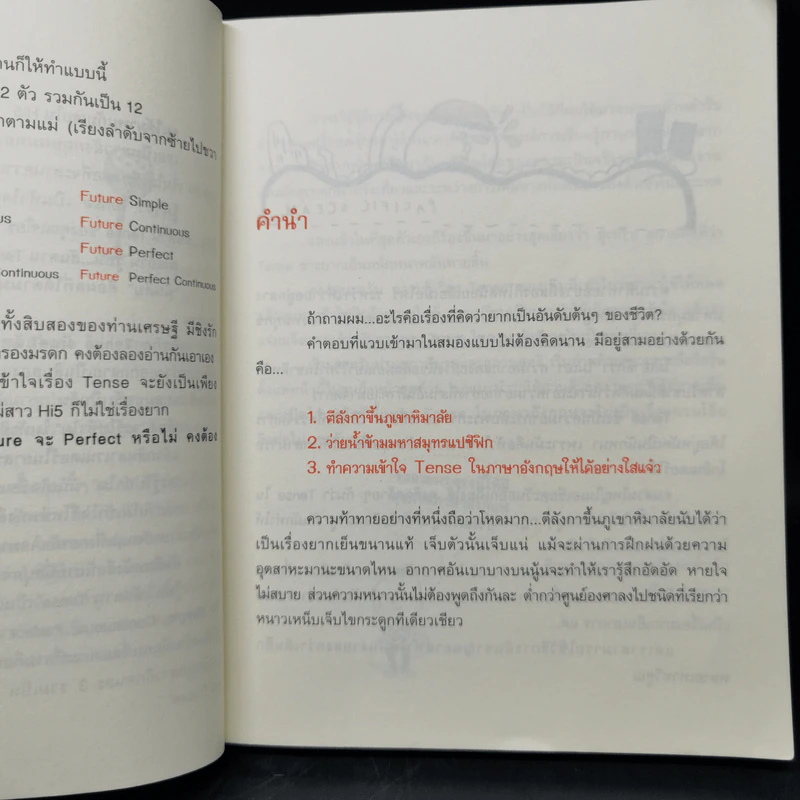 นก็ให้ทำแบบนี้
2 ตัว รวมกันเป็น 12
ตามแม่ (เรียงลำดับจากซ้ายไปขวา
Future Simple
Future Continuous
Future Perfect
Continuous Future Perfect Continuous
ทั้งสิบสองของท่านเศรษฐี มีชิงรัก
รองมรดก คงต้องลองอ่านกันเอาเอง
ข้าใจเรื่อง Tense จะยังเป็นเพียง
สาว Hi5 ก็ไม่ใช่เรื่องยาก
ure จะ Perfect หรือไม่ คงต้อง
PACIFIC OCEAN
คำนำ
ถ้าถามผม...อะไรคือเรื่องที่คิดว่ายากเป็นอันดับต้นๆ ของชีวิต?
คำตอบที่แวบเข้ามาในสมองแบบไม่ต้องคิดนาน มีอยู่สามอย่างด้วยกัน
คือ...
1. ตีลังกาขึ้นภูเขาหิมาลัย
2. ว่ายน้ำข้ามมหาสมุทรแปซิฟิก
3. ทำความเข้าใจ Tense ในภาษาอังกฤษให้ได้อย่างใสแจ๋ว
ความท้าทายอย่างที่หนึ่งถือว่าโหดมาก...ตีลังกาขึ้นภูเขาหิมาลัยนับได้ว่า
เป็นเรื่องยากเย็นขนานแท้ เจ็บตัวนั้นเจ็บแน่ แม้จะผ่านการฝึกฝนด้วยความ
อุตสาหะมานะขนาดไหน อากาศอันเบาบางบนนู้นจะทำให้เรารู้สึกอัดอัด หายใจ
ไม่สบาย ส่วนความหนาวนั้นไม่ต้องพูดถึงกันละ ต่ำกว่าศูนย์องศาลงไปชนิดที่เรียกว่า
หนาวเหน็บเจ็บไขกระดูกทีเดียวเชียว